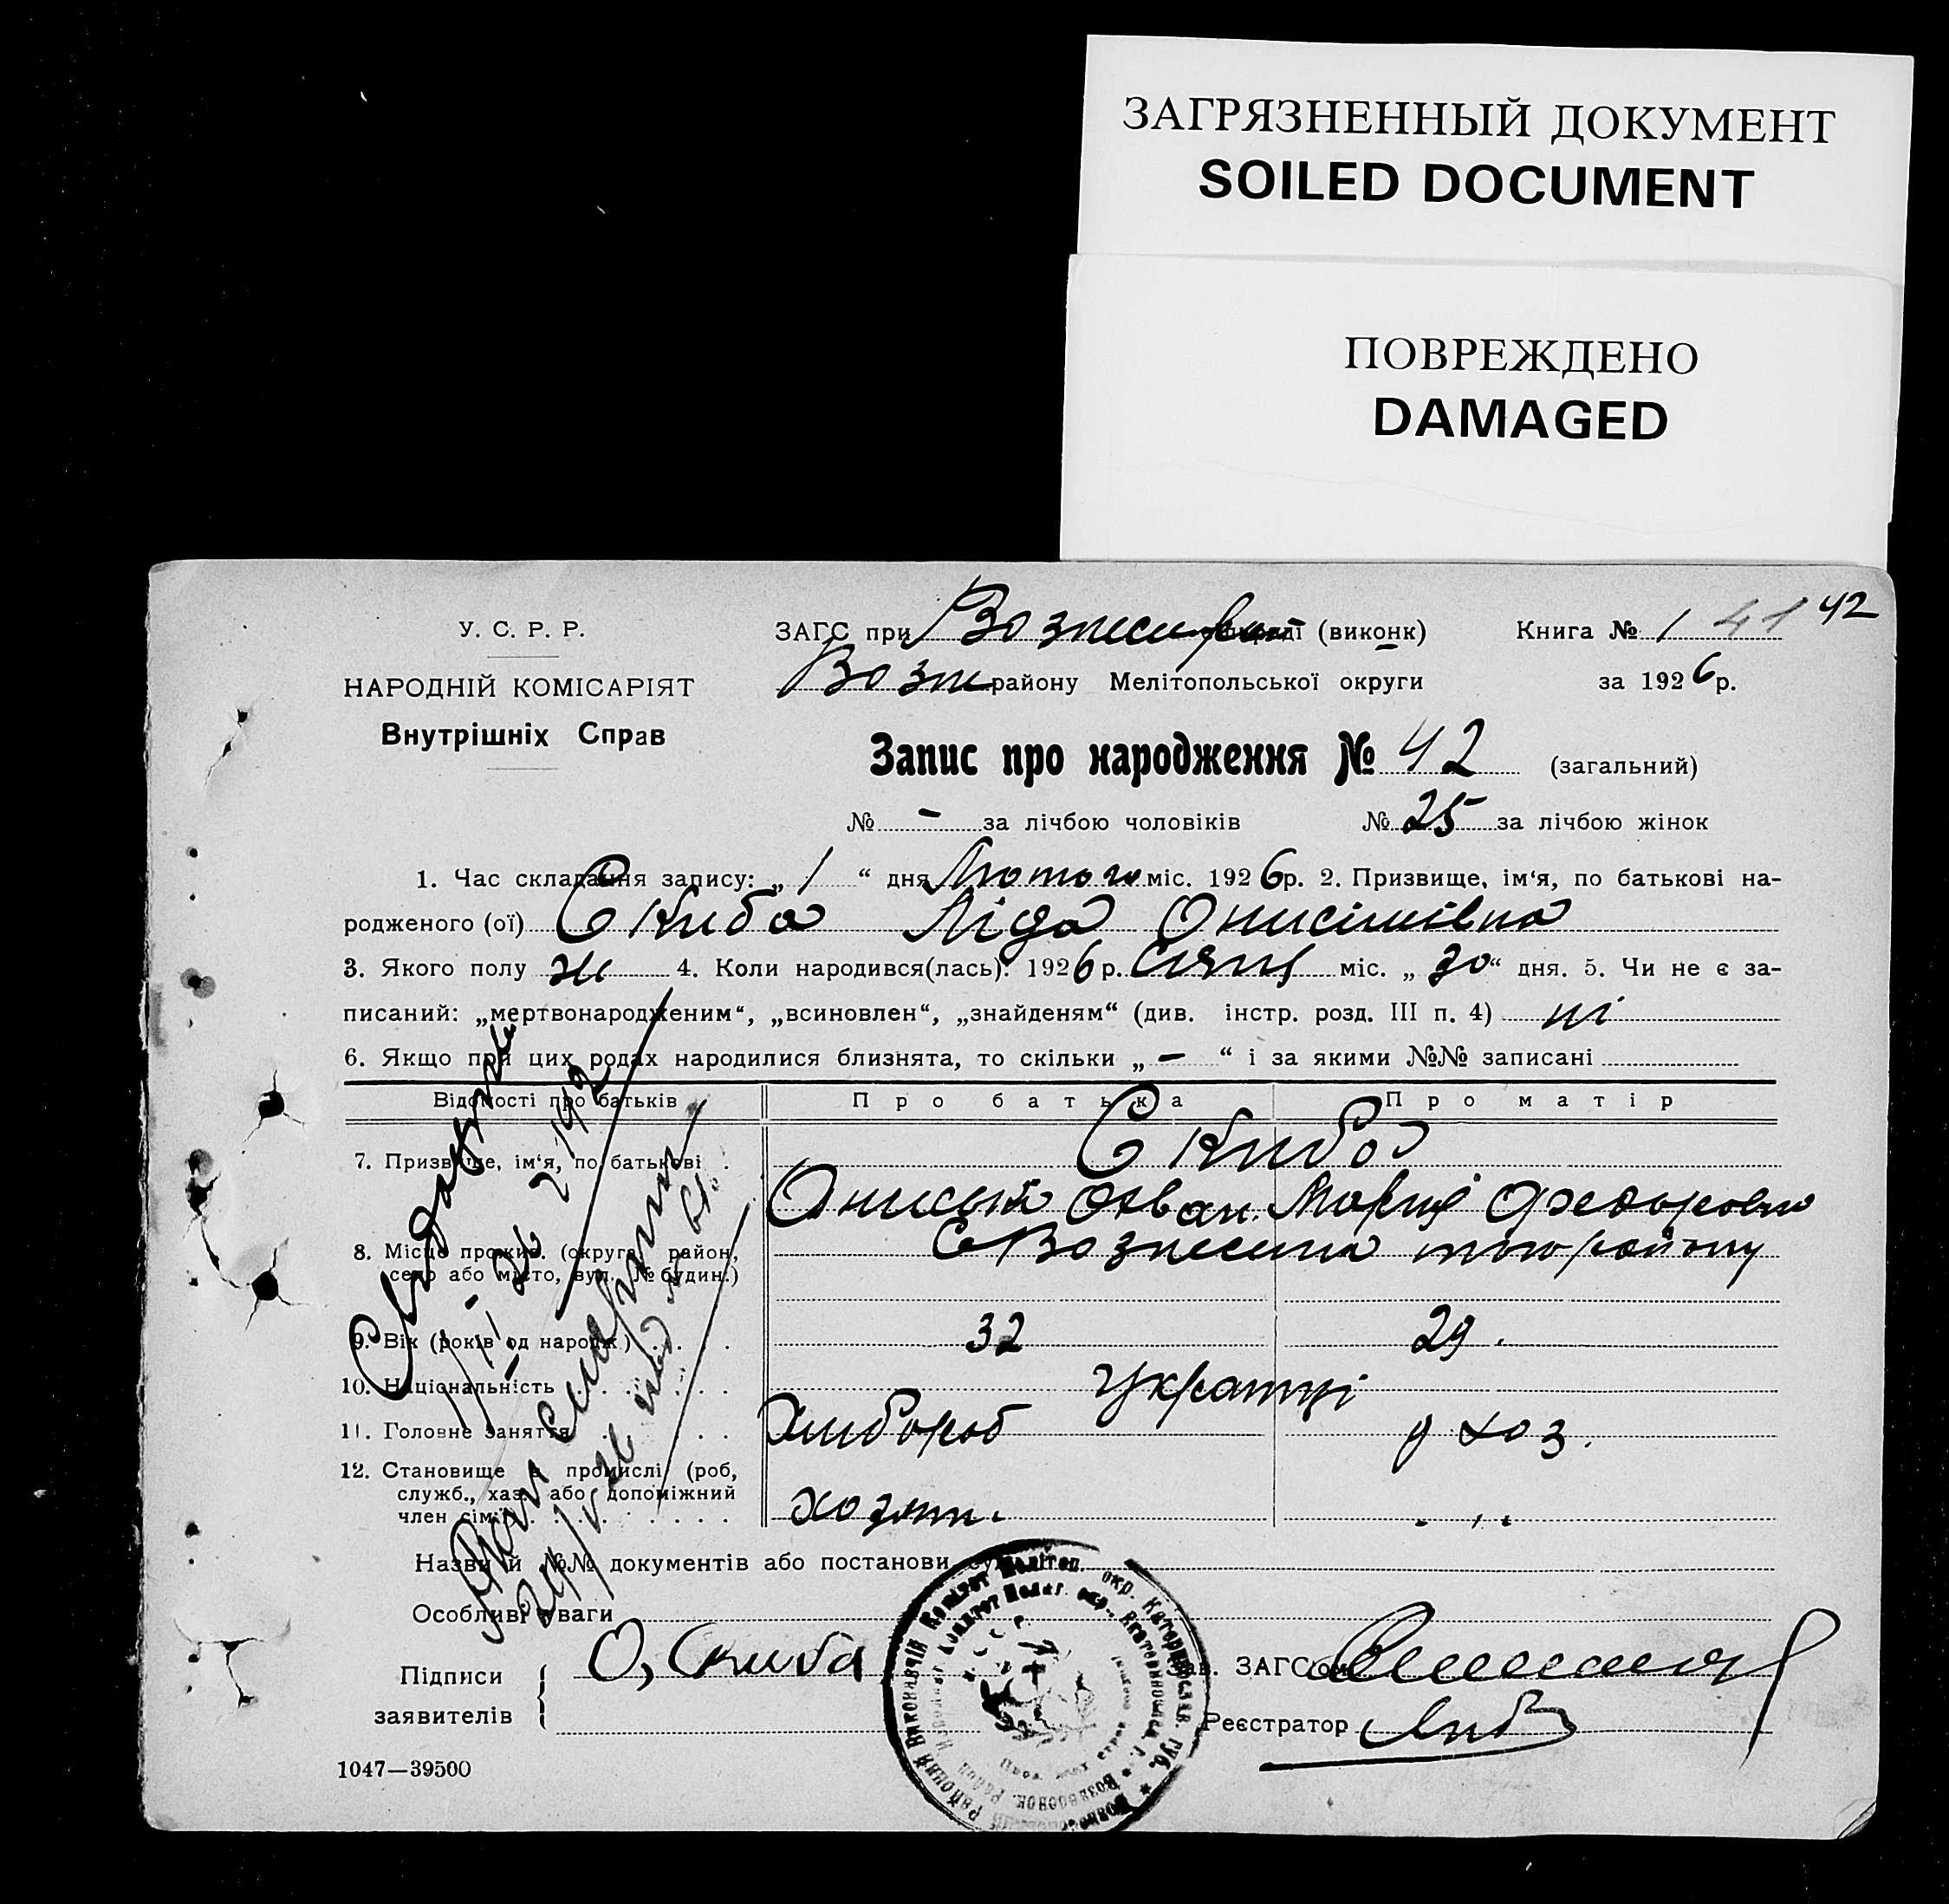 ЗАГРЯЗНЕННЫЙ ДОКУМЕНТ
SOILED DOCUMENT
ПОВРЕЖДЕНО
DAMAGED
У. С. Р. Р.
НАРОДНІЙ КОМІСАРІЯТ
Внутрішніх Справ
ЗАГС при (виконк) Книга № 1 41 42
Возн району Мелітопольської округи за 1926 р.
Запис про народження № 42 (загальний)
№ - за лічбою чоловіків № 25 за лічбою жінок
1. Час складання запису: „ 1 “ дня Лютого міс. 1926 р. 2. Призвище, ім‘я, по батькові на-
родженого (ої) Скиба Ліда Онисімівна
3. Якого полу ж 4. Коли народився(лась): 1926 р. Січня міс. „ 30 “ дня. 5. Чи не є за-
писаний: „мертвонародженим“, „всиновлен“, „знайденям“ (див. інстр. розд. III п. 4) ні
6. Якщо при цих родах народилися близнята, то скільки „ - “ і за якими №№ записані
Відомості про батьків Про батька Про матір
7. Призвище, ім‘я, по батькові Скиба
Онисим Іван. Марія Федоровна
8. Місце прожив. (округа, район, С Вознесенка того району
село або місто, вул. № будин.)
9. Вік (років од народж.) 32 29.
10. Національність Українці
11. Головне заняття Хлибороб д хоз.
12. Становище в промислі (роб,
служб., хаз. або допоміжний
член сім‘ї) хозяин.
Назви й №№ документів або постанови
Особливі уваги
Підписи О, Скиба Зав. ЗАГС‘ом
заявителів Реєстратор
1047—39500